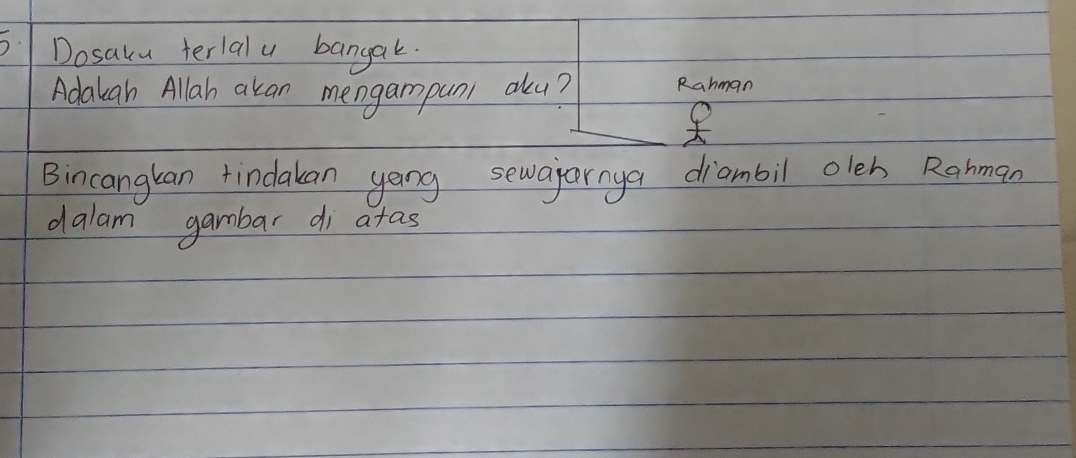 5. Dosaku terlalu banyak.
Adakah Allah akan mengampuni aku?
Rahman
Bincangkan tindakan yang sewajarnya diambil oleh Rahman
dalam gambar di atas